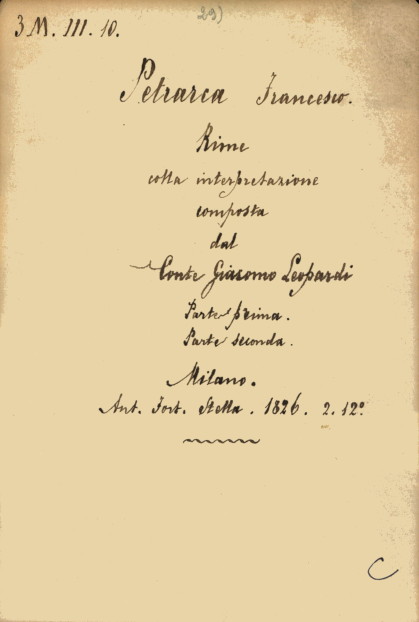 29)
3 M. III. 10.
Petrarca Francesco.
Rime
colla interpretazione
composta
dal
Conte Giacomo Leopardi
Parte prima.
Parte seconda.
Milano.
Ant. Fort. Stella. 1826. 2. 12º
C